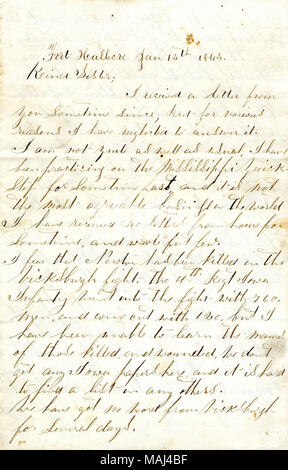 Fort Halleck Jan 13th 1863.
Kind Sister;
I recived a letter from
you Sometime since, but for various
reasons I have neglected to answer it.
I am not quite as well as usual, I have
been practicing on the Mississippi Quick-
Step for Sometime last, and it is not
the most agreeable business in the world
I have received no letter from home for
Sometime, and wrote but few.
I fear that Newton has been killed in the
Vicksburgh fight. The 4th Regt Iowa
Infanty went into the fight with 700.
Men, and came out with 120, but I
have been unable to learn the names
of those killed, and wounded, we dont
get any Iowa papers here and it is hard
to find a list in any others.
We have got no word from Vicksburgh
for Several days.
alamy
Image ID: MAJ4BF
www.alamy.com